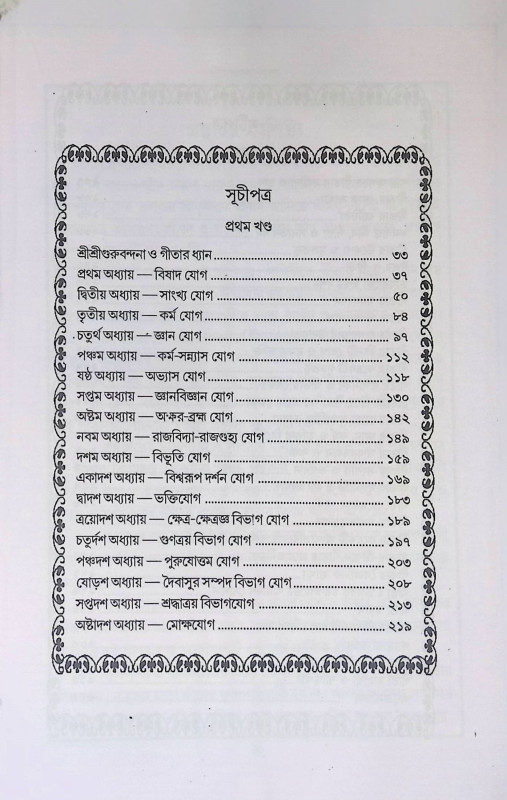 সূচীপত্র
প্রথম খণ্ড
শ্রীশ্রীগুরুবন্দনা ও গীতার ধ্যান ........ ৩৩
প্রথম অধ্যায় — বিষাদ যোগ ........ ৩৭
দ্বিতীয় অধ্যায় — সাংখ্য যোগ ........ ৫০
তৃতীয় অধ্যায় — কর্ম যোগ ........ ৮৪
চতুর্থ অধ্যায় — জ্ঞান যোগ ........ ৯৭
পঞ্চম অধ্যায় — কর্ম-সন্ন্যাস যোগ ........ ১১২
ষষ্ঠ অধ্যায় — অভ্যাস যোগ ........ ১১৮
সপ্তম অধ্যায় — জ্ঞানবিজ্ঞান যোগ ........ ১৩০
অষ্টম অধ্যায় — অক্ষর-ব্রহ্ম যোগ ........ ১৪২
নবম অধ্যায় — রাজবিদ্যা-রাজগুহ্য যোগ ........ ১৪৯
দশম অধ্যায় — বিভূতি যোগ ........ ১৫৯
একাদশ অধ্যায় — বিশ্বরূপ দর্শন যোগ ........ ১৬৯
দ্বাদশ অধ্যায় — ভক্তিযোগ ........ ১৮৩
ত্রয়োদশ অধ্যায় — ক্ষেত্র-ক্ষেত্রজ্ঞ বিভাগ যোগ ........ ১৮৯
চতুর্দশ অধ্যায় — গুণত্রয় বিভাগ যোগ ........ ১৯৭
পঞ্চদশ অধ্যায় — পুরুষোত্তম যোগ ........ ২০৩
ষোড়শ অধ্যায় — দৈবাসুর সম্পদ বিভাগ যোগ ........ ২০৮
সপ্তদশ অধ্যায় — শ্রদ্ধাত্রয় বিভাগযোগ ........ ২১৩
অষ্টাদশ অধ্যায় — মোক্ষযোগ ........ ২১৯